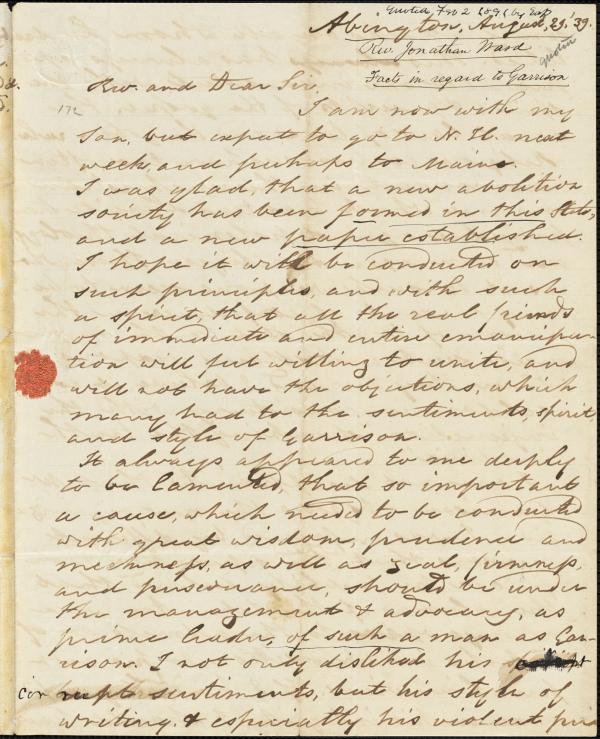 Quoted Feb 2 1891 by
Abington, August, 29, '39.
Rev. Jonathan Ward
Facts in regard to Garrison
quoted
172
Rev. and Dear Sir,
I am now with my
Son, but expect to go to N. H. next
week, and perhaps to Maine.
I was glad, that a new abolition
society has been formed in this State,
and a new paper established.
I hope it will be conducted on
such principles, and with such
a spirit, that all the real friends
of immediate and entire emancipa-
tion will feel willing to unite, and
will not have the objections, which
many had to the sentiments, spirit
and style of Garrison.
It always appeared to me deeply
to be lamented, that so important
a cause, which needed to be conducted
with great wisdom, prudence and
meekness, as well as zeal, firmness,
and perseverance, should be under
the management & advocacy, as
prime leader, of such a man as Gar-
rison. I not only disliked his
cor rupt sentiments, but his style of
writing, & especially his violent